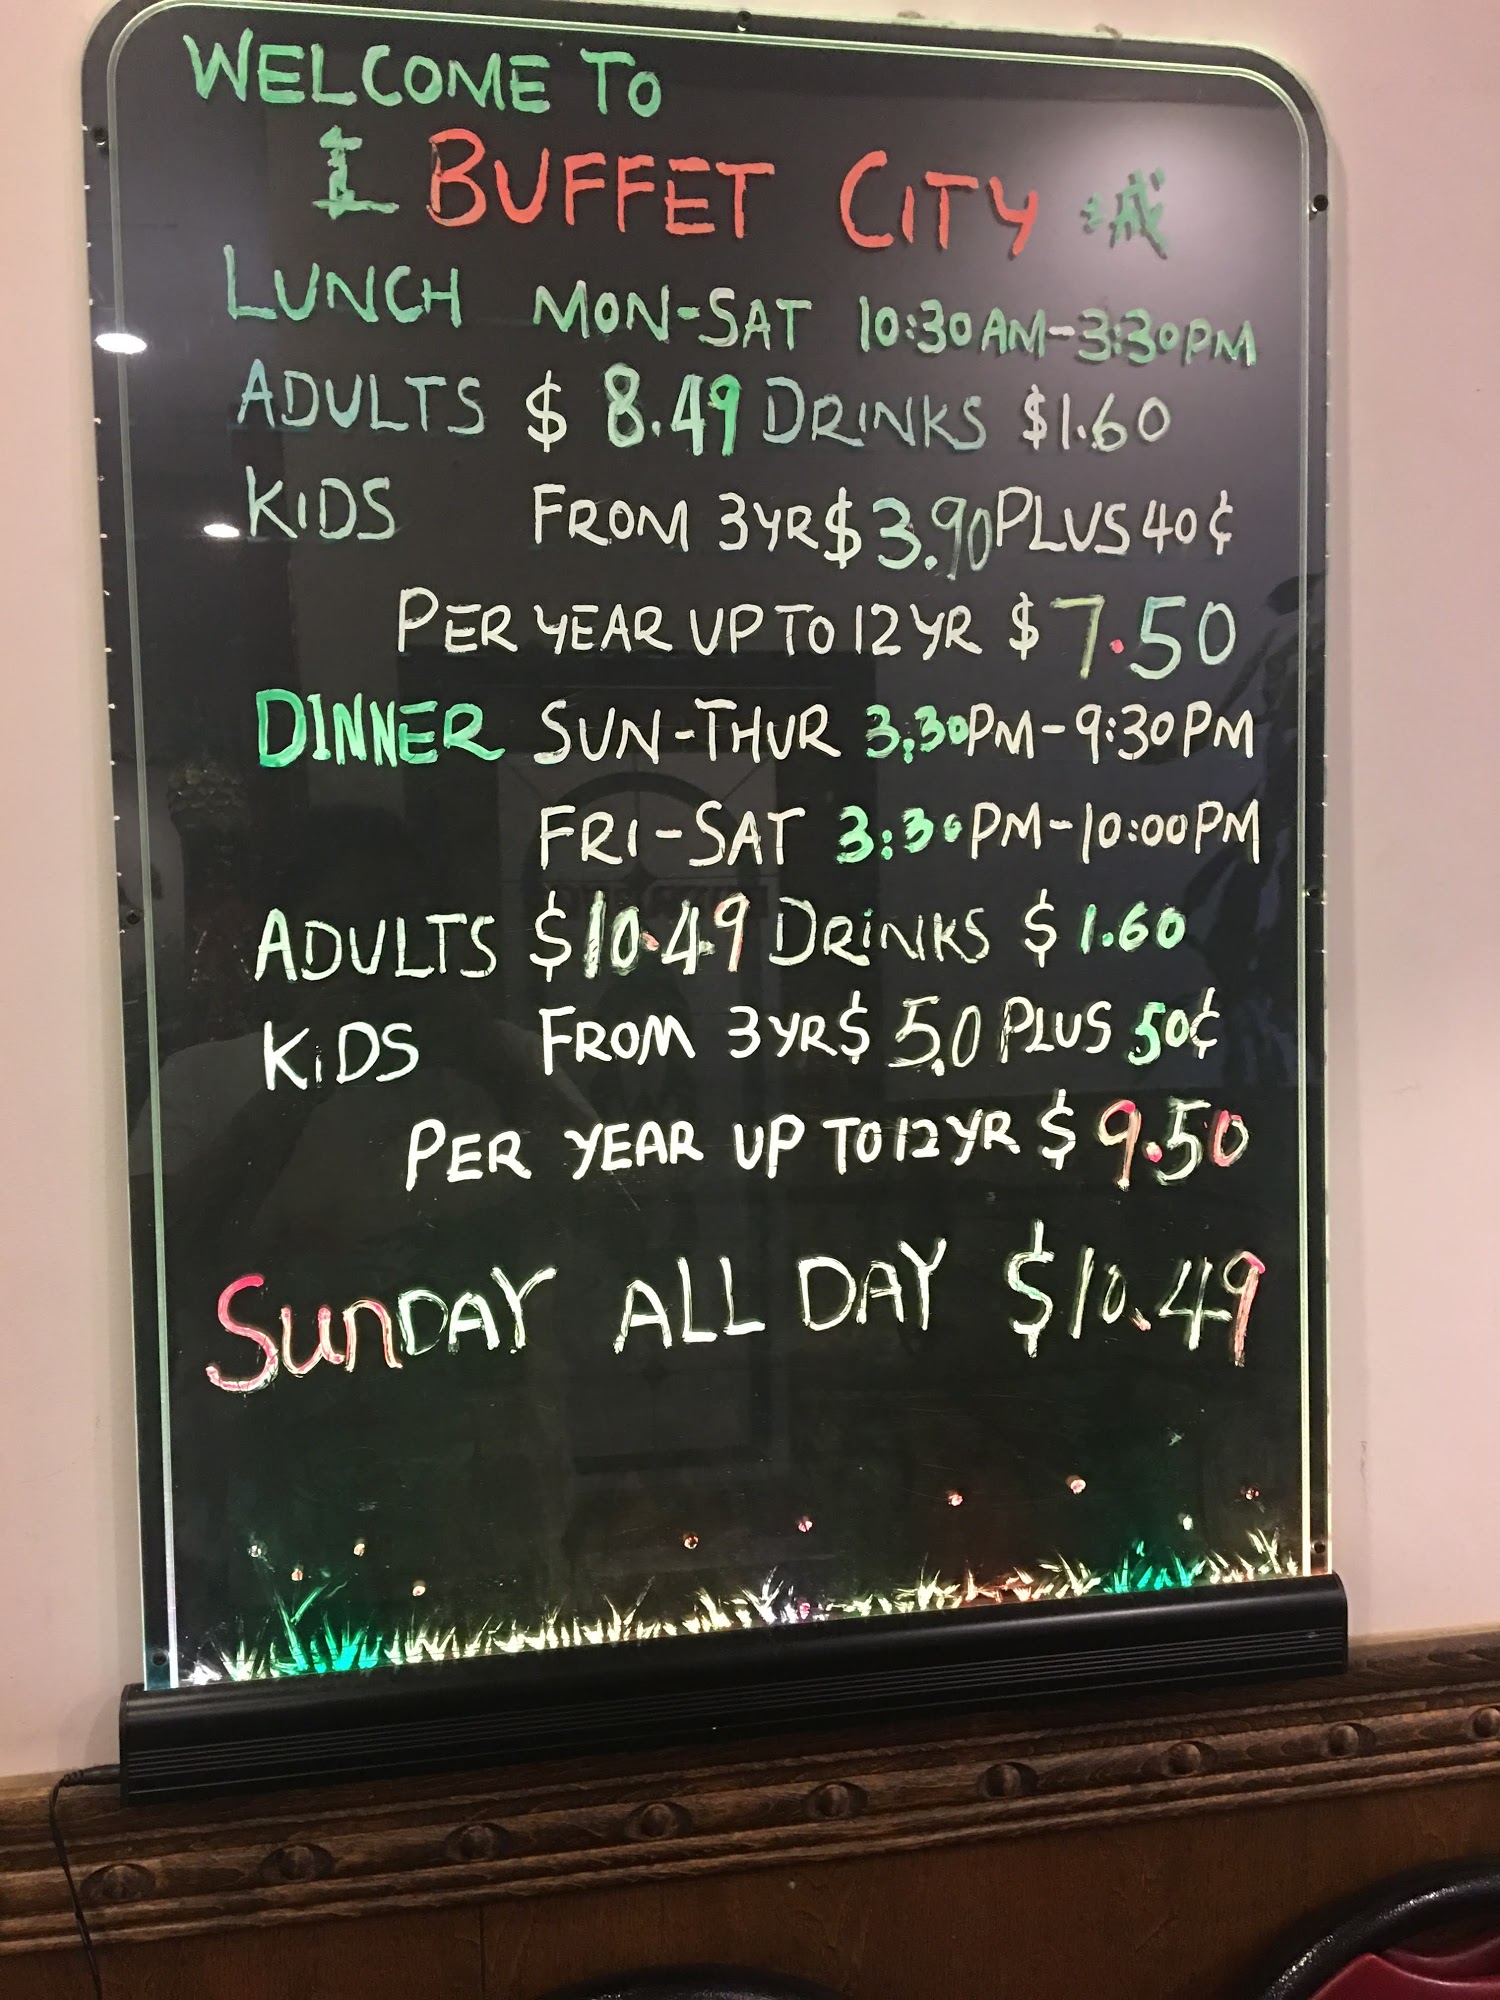 WELCOME TO
BUFFET CITY 城
LUNCH MON-SAT 10:30AM-3:30PM
ADULTS $ 8.49 DRINKS $1.60
KIDS FROM 3YR $3.90 PLUS 40¢
PER YEAR UP TO 12YR $7.50
DINNER SUN-THUR 3:30PM-9:30PM
FRI-SAT 3:30PM-10:00PM
ADULTS $10.49 DRINKS $1.60
KIDS FROM 3YR $5.0 PLUS 50¢
PER YEAR UP TO 12YR $9.50
SunDAY ALL DAY $10.49